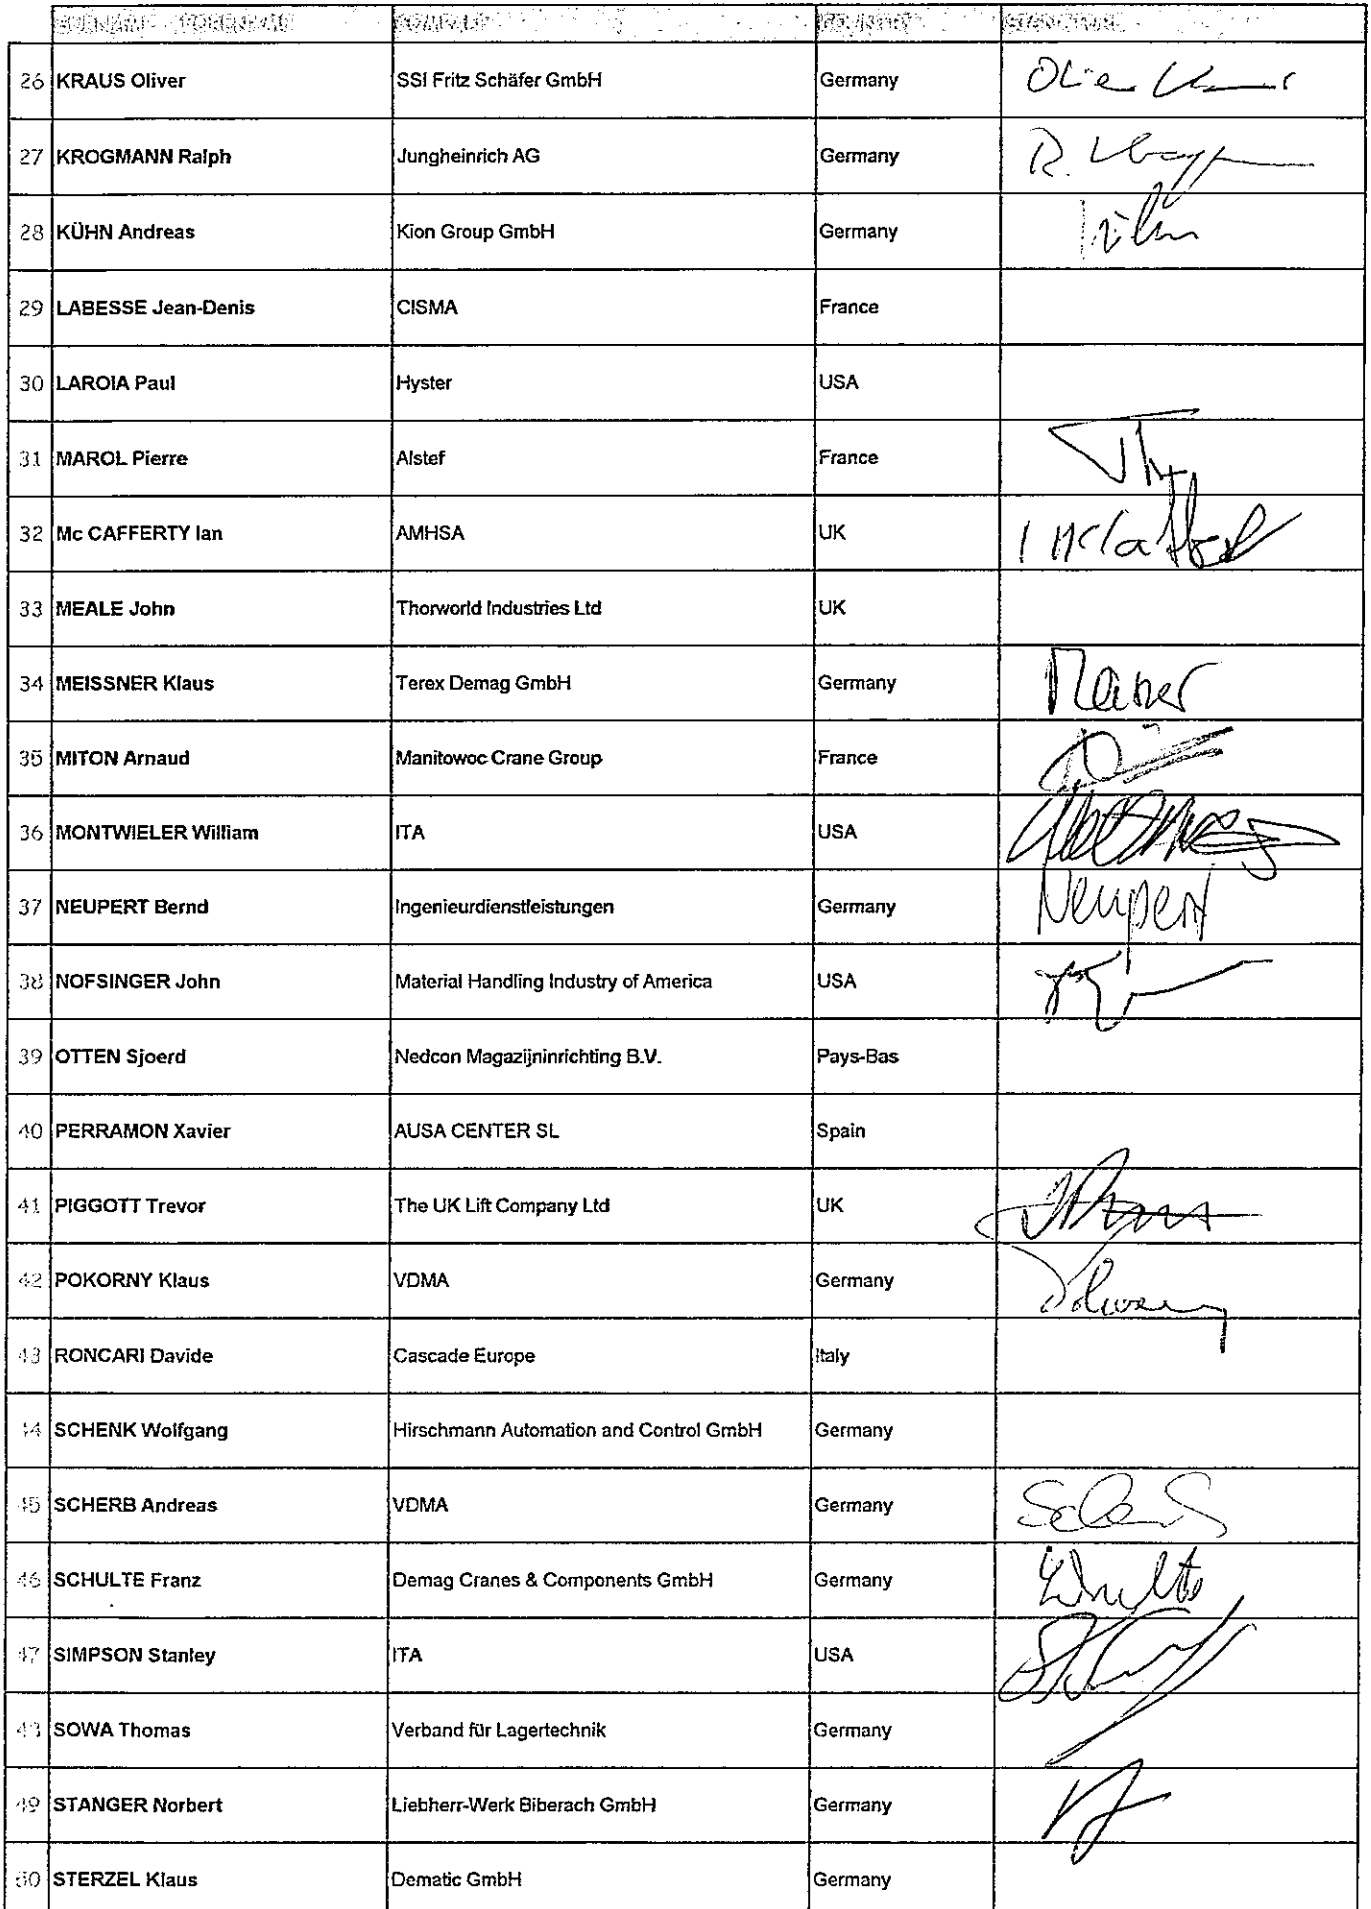 26 KRAUS Oliver SSI Fritz Schäfer GmbH Germany
27 KROGMANN Ralph Jungheinrich AG Germany
28 KÜHN Andreas Kion Group GmbH Germany
29 LABESSE Jean-Denis CISMA France
30 LAROIA Paul Hyster USA
31 MAROL Pierre Alstef France
32 Mc CAFFERTY Ian AMHSA UK
33 MEALE John Thorworld Industries Ltd UK
34 MEISSNER Klaus Terex Demag GmbH Germany
35 MITON Arnaud Manitowoc Crane Group France
36 MONTWIELER William ITA USA
37 NEUPERT Bernd Ingenieurdienstleistungen Germany Neupert
38 NOFSINGER John Material Handling Industry of America USA
39 OTTEN Sjoerd Nedcon Magazijninrichting B.V. Pays-Bas
40 PERRAMON Xavier AUSA CENTER SL Spain
41 PIGGOTT Trevor The UK Lift Company Ltd UK
42 POKORNY Klaus VDMA Germany
43 RONCARI Davide Cascade Europe Italy
44 SCHENK Wolfgang Hirschmann Automation and Control GmbH Germany
45 SCHERB Andreas VDMA Germany
46 SCHULTE Franz Demag Cranes & Components GmbH Germany Schulte
47 SIMPSON Stanley ITA USA
48 SOWA Thomas Verband für Lagertechnik Germany
49 STANGER Norbert Liebherr-Werk Biberach GmbH Germany
50 STERZEL Klaus Dematic GmbH Germany